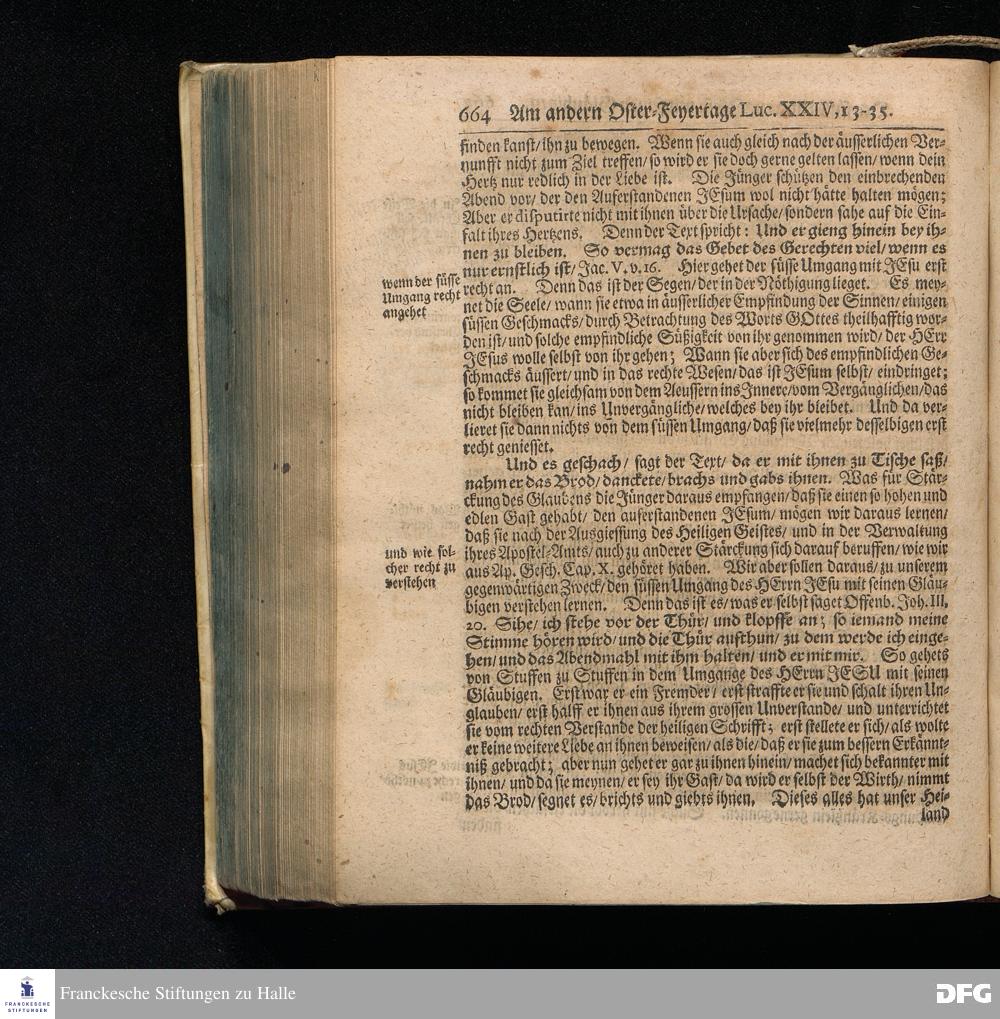 664 Am andern Oster-Feyertage Luc. XXIV, 13-35.
finden kanst/ ihn zu bewegen. Wenn sie auch gleich nach der äusserlichen Ver-
nunfft nicht zum Ziel treffen/ so wird er sie doch gerne gelten lassen/ wenn dein
Hertz nur redlich in der Liebe ist. Die Jünger schützen den einbrechenden
Abend vor/ der den Auferstandenen JEsum wol nicht hätte halten mögen;
Aber er disputirte nicht mit ihnen über die Ursache/ sondern sahe auf die Ein-
falt ihres Hertzens. Denn der Text spricht: Und er gieng hinein bey ih-
nen zu bleiben. So vermag das Gebet des Gerechten viel/ wenn es
nur ernstlich ist/ Jac. V. v. 16. Hier gehet der süsse Umgang mit JEsu erst
recht an. Denn das ist der Segen/ der in der Nöthigung lieget. Es mey-
net die Seele/ wann sie etwa in äusserlicher Empfindung der Sinnen/ einigen
süssen Geschmacks/ durch Betrachtung des Worts GOttes theilhafftig wor-
den ist/ und solche empfindliche Süßigkeit von ihr genommen wird/ der HErr
JEsus wolle selbst von ihr gehen; Wann sie aber sich des empfindlichen Ge-
schmacks äussert/ und in das rechte Wesen/ das ist JEsum selbst/ eindringet;
so kommet sie gleichsam von dem Aeussern ins Innere/ vom Vergänglichen/ das
nicht bleiben kan/ ins Unvergängliche/ welches bey ihr bleibet. Und da ver-
lieret sie dann nichts von dem süssen Umgang/ daß sie vielmehr desselbigen erst
recht geniesset.
wenn der süsse
Umgang recht
angehet
Und es geschach/ sagt der Text/ da er mit ihnen zu Tische saß/
nahm er das Brod/ danckete/ brachs und gabs ihnen. Was für Stär-
ckung des Glaubens die Jünger daraus empfangen/ daß sie einen so hohen und
edlen Gast gehabt/ den auferstandenen JEsum/ mögen wir daraus lernen/
daß sie nach der Ausgiessung des Heiligen Geistes/ und in der Verwaltung
ihres Apostel-Amts/ auch zu anderer Stärckung sich darauf beruffen/ wie wir
aus Ap. Gesch. Cap. X. gehöret haben. Wir aber sollen daraus/ zu unserem
gegenwärtigen Zweck/ den süssen Umgang des HErrn JEsu mit seinen Gläu-
bigen verstehen lernen. Denn das ist es/ was er selbst saget Offenb. Joh. III,
20. Sihe/ ich stehe vor der Thür/ und klopffe an; so iemand meine
Stimme hören wird/ und die Thür aufthun/ zu dem werde ich einge-
hen/ und das Abendmahl mit ihm halten/ und er mit mir. So gehets
von Stuffen zu Stuffen in dem Umgange des HErrn JESU mit seinen
Gläubigen. Erst war er ein Fremder/ erst straffte er sie und schalt ihren Un-
glauben/ erst halff er ihnen aus ihrem grossen Unverstande/ und unterrichtet
sie vom rechten Verstande der heiligen Schrifft; erst stellete er sich/ als wolte
er keine weitere Liebe an ihnen beweisen/ als die/ daß er sie zum bessern Erkännt-
niß gebracht; aber nun gehet er gar zu ihnen hinein/ machet sich bekannter mit
ihnen/ und da sie meynen/ er sey ihr Gast/ da wird er selbst der Wirth/ nimmt
das Brod/ segnet es/ brichts und giebts ihnen. Dieses alles hat unser Hei-
land
und wie sol-
cher recht zu
verstehen
FRANCKESCHE
STIFTUNGEN
Franckesche Stiftungen zu Halle
DFG